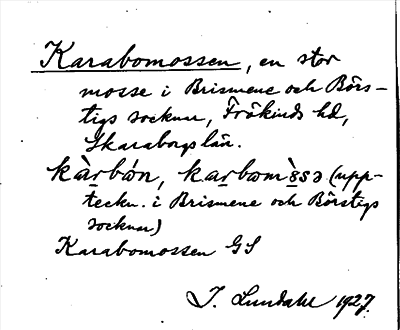 Karabomossen, en stor
mosse i Brismene och Börs-
tigs socknar, Frökinds hd,
Skaraborgs län.
kàrbón, karbomòssə (upp-
teckn. i Brismene och Börstigs
socknar)
Karabomossen GS
I. Lundahl 1927.